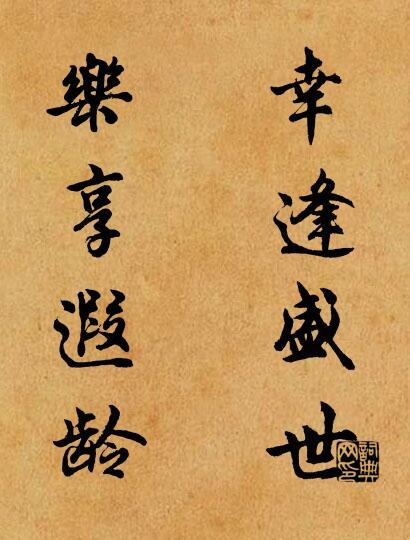 幸逢盛世
樂享遐龄
詞典网印